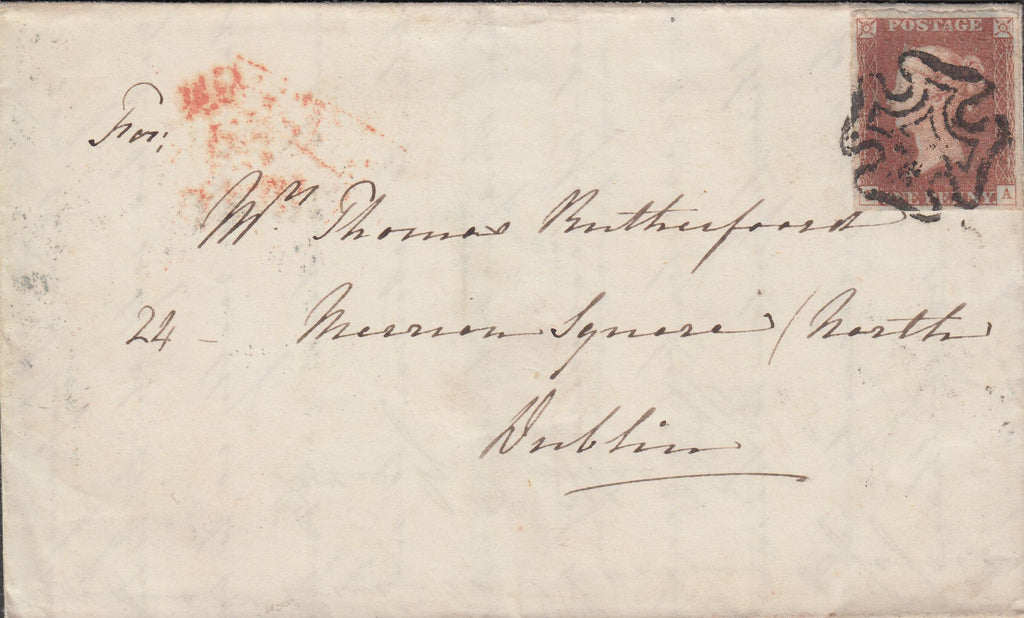 POSTAGE
For;
Mrs Thomas Rutherfoord
24 - Merrion Square (North
Dublin
A